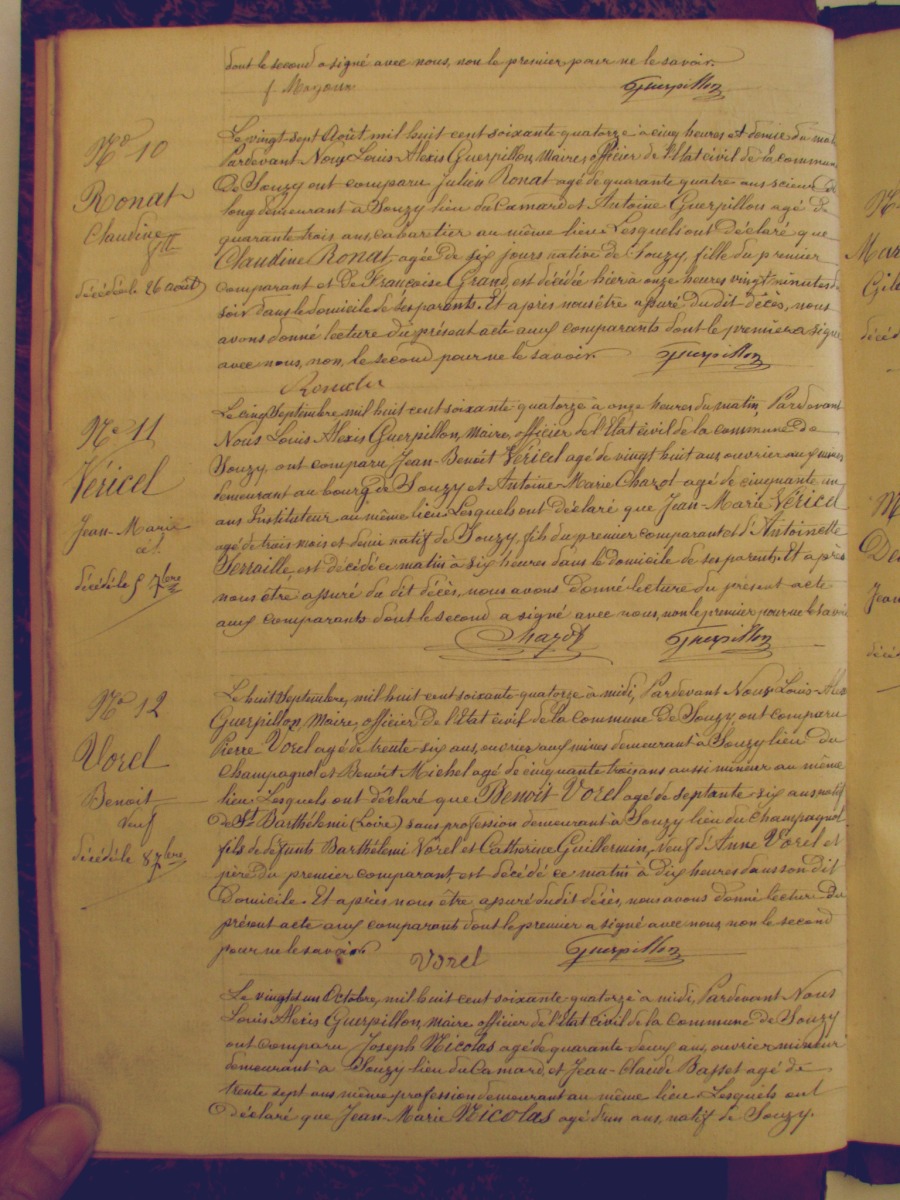 dont le second a signé avec nous, non le premier pour ne le savoir.
Guerpillon
No 10
Ronat
Claudine
fille
décédée le 26 août
Le vingt sept Août mil huit cent soixante quatorze à cinq heures et demie du
Pardevant Nous Louis Alexis Guerpillon, Maire, officier de l'Etat civil de la commune
De Souzy ont comparu Julien Ronat agé de quarante quatre ans scieur de
long demeurant à Souzy lieu du Camard et Antoine Guerpillon agé de
quarante trois ans, cabaretier au même lieu. Lesquels ont déclaré que
Claudine Ronat, agée de six jours native de Souzy, fille du premier
comparant et de Françoise Grand, est décédée hier à onze heures vingt minutes du
soir dans le domicile de ses parents. Et après nous être assuré du dit décès, nous
avons donné lecture du présent acte aux comparants dont le premier a signé
avec nous, non, le second pour ne le savoir.
Guerpillon
No 11
Véricel
Jean-Marie
cél.
décédé le 5 7bre
Le cinq Septembre, mil huit cent soixante quatorze à onze heures du matin, Pardevant
Nous Louis Alexis Guerpillon, Maire, officier de l'Etat civil de la commune de
Souzy, ont comparu Jean-Benoît Véricel agé de vingt huit ans ouvrier aux mines
demeurant au bourg de Souzy et Antoine Marie Chazot agé de cinquante un
ans Instituteur au même lieu. Lesquels ont déclaré que Jean-Marie Véricel
agé de trois mois et demi natif de Souzy, fils du premier comparant et d'Antoinette
est décédé ce matin à six heures dans le domicile de ses parents. Et après
nous être assuré du dit décès, nous avons donné lecture du présent acte
aux comparants dont le second a signé avec nous, non le premier pour ne le savoir
Chazot
Guerpillon
No 12
Vorel
Benoit
veuf
décédé le 8 7bre
Le huit Septembre, mil huit cent soixante quatorze à midi, Pardevant Nous Louis-Alexis
Guerpillon, Maire, officier de l'Etat civil de la commune De Souzy, ont comparu
Pierre Vorel agé de trente-six ans, ouvrier aux mines demeurant à Souzy lieu du
Champagnol et Benoît Michel agé de cinquante trois ans aussi mineur au même
lieu. Lesquels ont déclaré que Benoît Vorel agé de septante-six ans natif
de St Barthélemi (Loire) sans profession demeurant à Souzy lieu du Champagnol
fils de défunts Barthélemi Vorel et Catherine Guillermin, Veuf d'Anne Vorel et
père du premier comparant, est décédé ce matin à dix heures dans son dit
Domicile. Et après nous être assuré dudit décès, nous avons donné lecture du
présent acte aux comparants dont le premier a signé avec nous, non le second
pour ne le savoir.
Vorel
Guerpillon
Le vingt et un Octobre, mil huit cent soixante quatorze à midi, Pardevant Nous
Louis Alexis Guerpillon, Maire officier de l'Etat Civil de la Commune de Souzy
ont comparu Joseph Nicolas agé de quarante deux ans, ouvrier mineur
demeurant à Souzy lieu du Camard, et Jean-Claude Basset agé de
trente sept ans même profession demeurant au même lieu. Lesquels ont
déclaré que Jean-Marie Nicolas agé d'un ans, natif de Souzy.